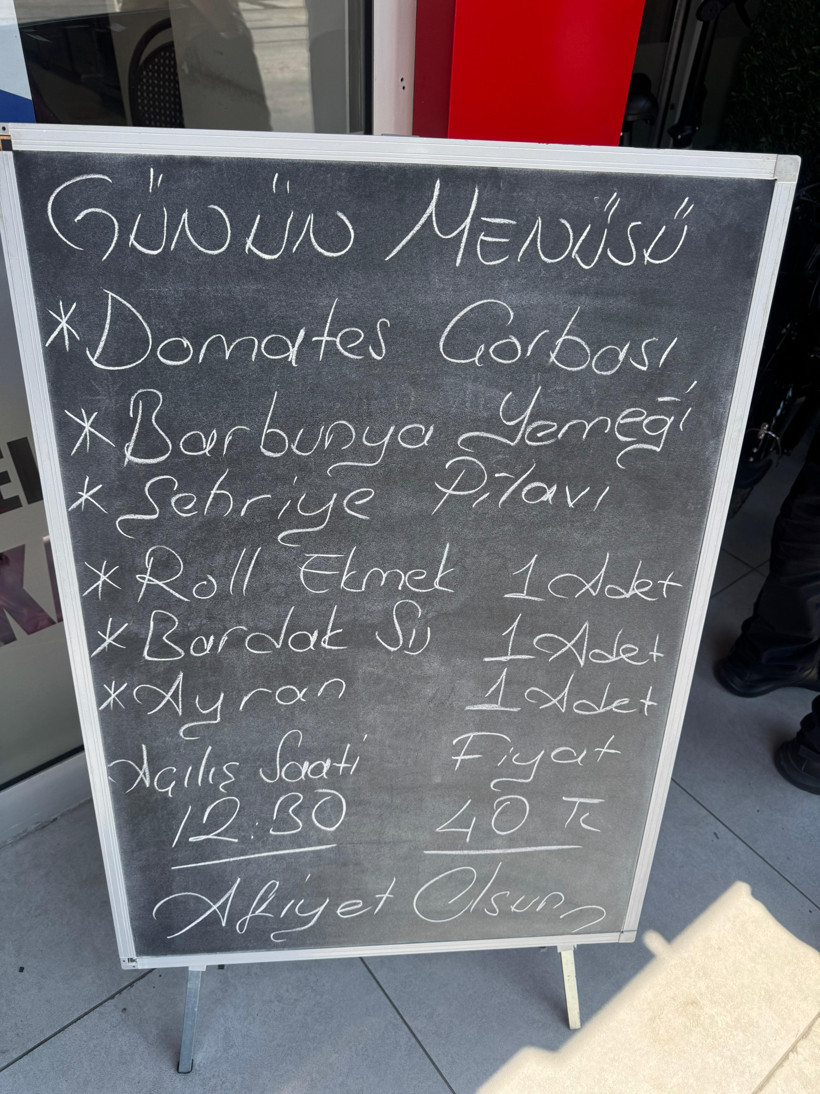 GÜNÜN MENÜSÜ
* Domates Çorbası
* Barbunya Yemeği
* Şehriye Pilavı
* Roll Ekmek 1 Adet
* Bardak Su 1 Adet
* Ayran 1 Adet
Açılış Saati Fiyat
12:30 40 TL
Afiyet Olsun